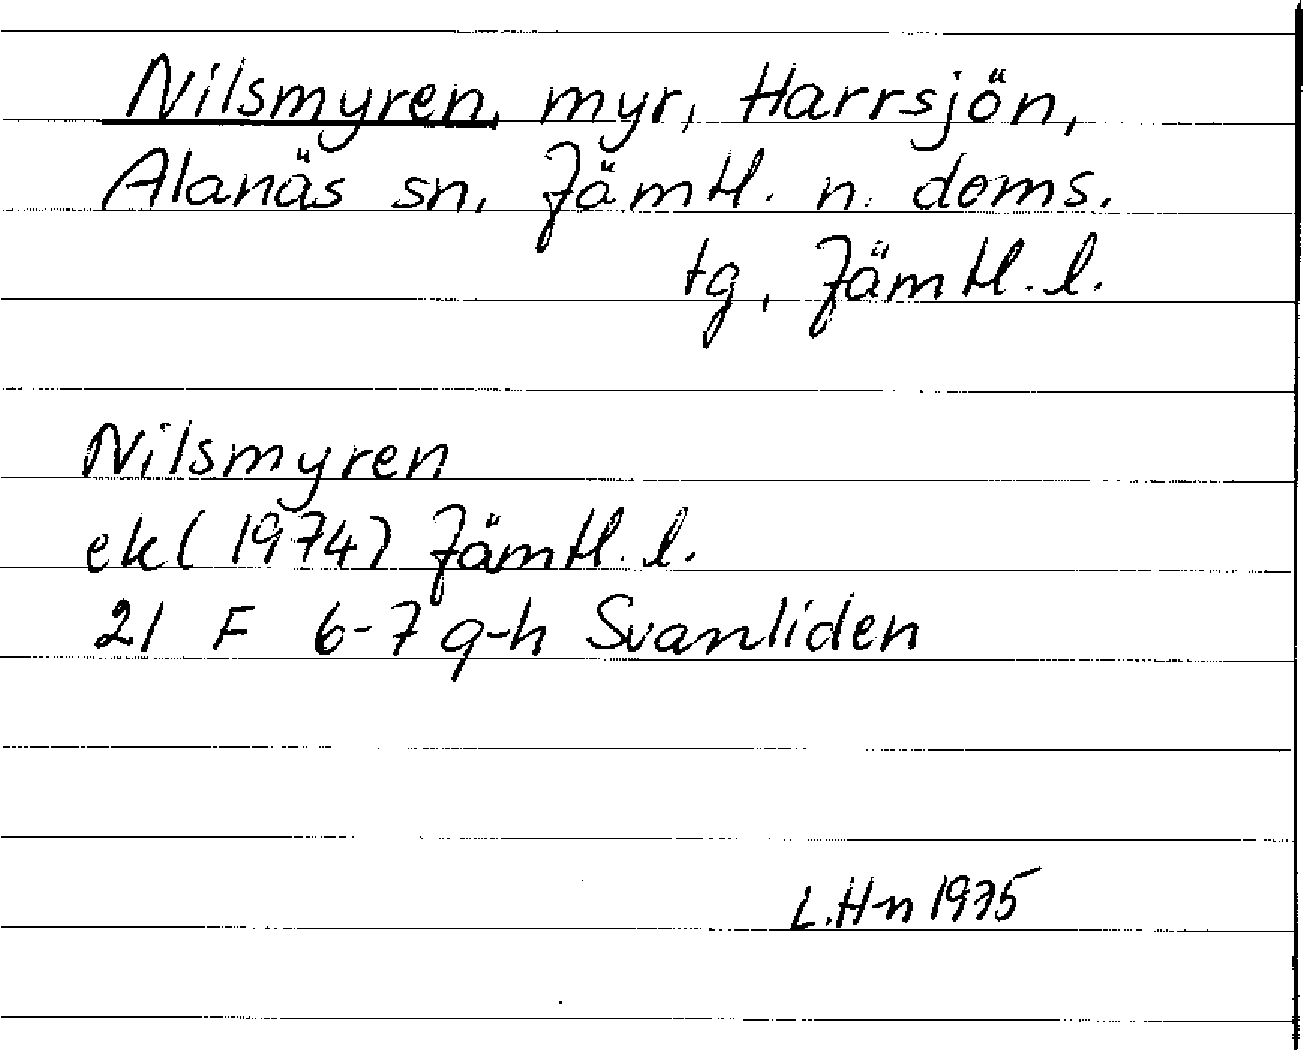 Nilsmyren, myr, Harrsjön,
Alanäs sn, Jämtl. n. doms.
tg, Jämtl. l.
Nilsmyren
ek (1974) Jämtl. l.
21 F 6-7 g-h Svanliden
L.H-n 1975